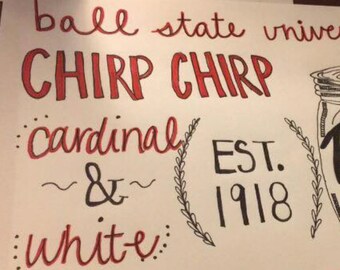 ball state unive
CHIRP CHIRP
cardinal
&
white
EST.
1918